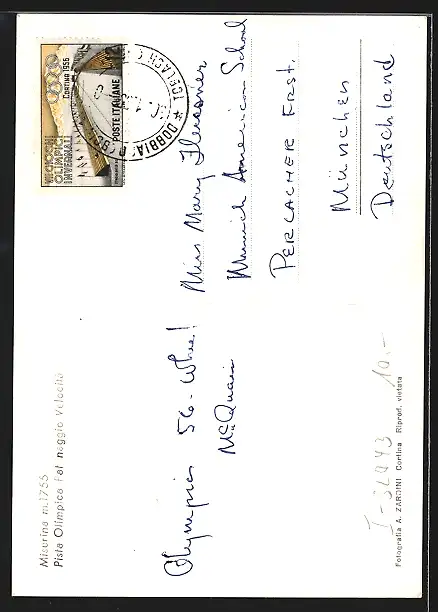 Misurina m.1755
Pista Olimpica Pat naggio Velocità
Olympics 56 - Whee!
McQuain
VII GIOCHI
OLIMPICI
INVERNALI
CORTINA 1956
POSTE ITALIANE
Miss Mary
Munich American School
PERLACHER Frst.
München
Deutschland
I-32043
10.-
Fotografia A. ZARDINI Cortina Riprod. vietata